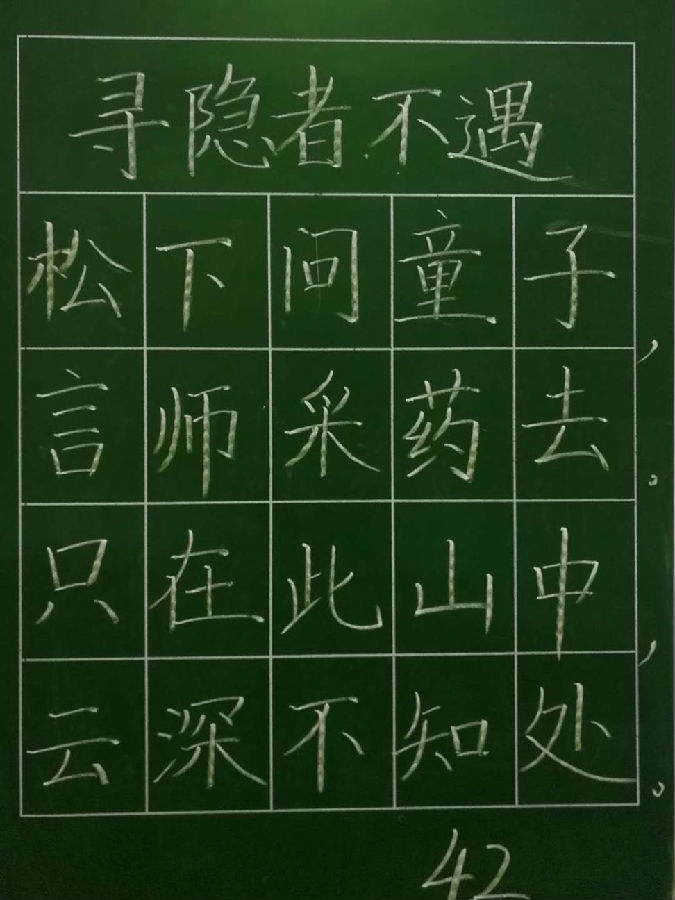 寻隐者不遇
松下问童子，
言师采药去。
只在此山中，
云深不知处。
42